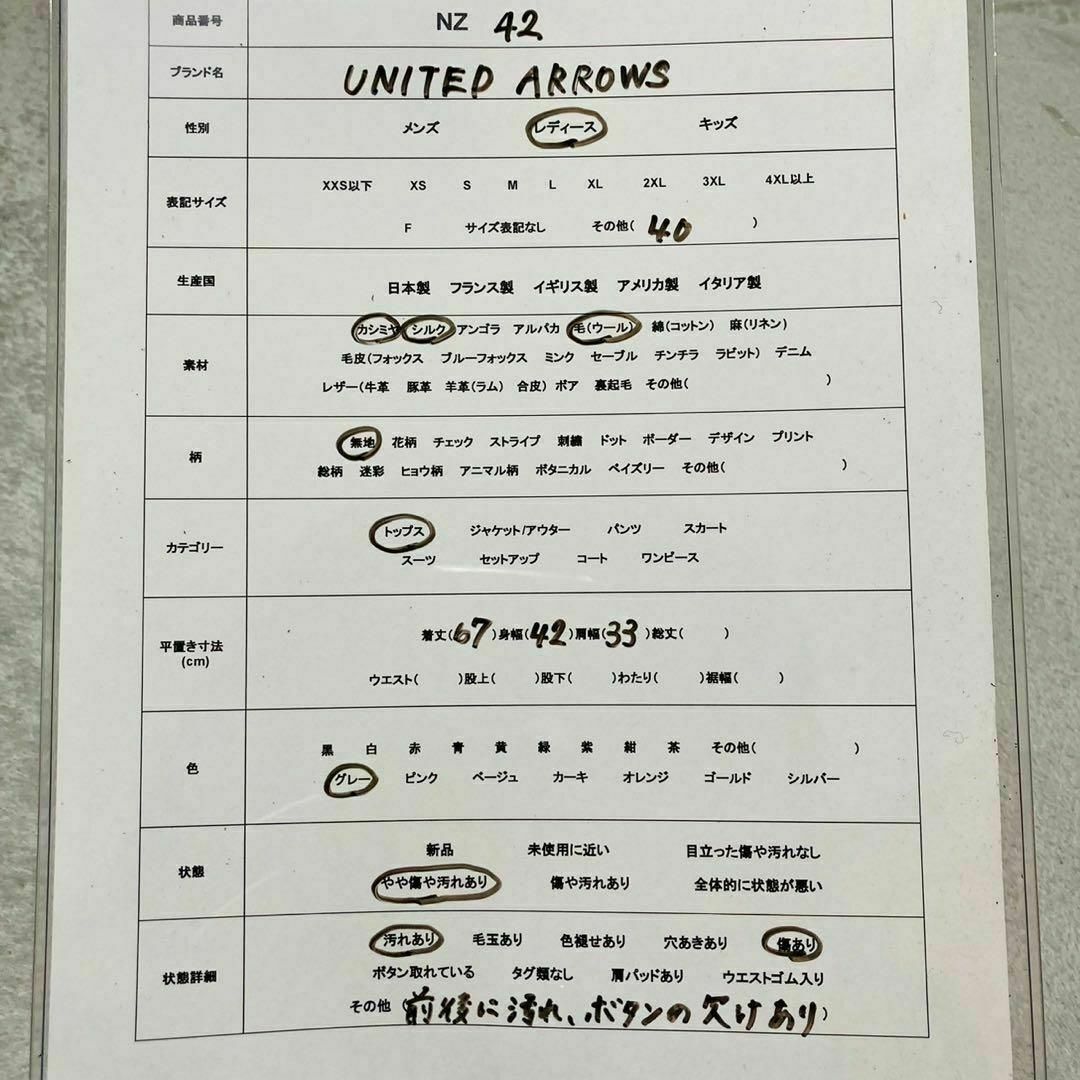 商品番号 NZ 42
ブランド名 UNITED ARROWS
性別 メンズ レディース キッズ
表記サイズ
XXS以下 XS S M L XL 2XL 3XL 4XL以上
F サイズ表記なし その他( 40 )
生産国 日本製 フランス製 イギリス製 アメリカ製 イタリア製
素材
カシミヤ シルク アンゴラ アルパカ 毛(ウール) 綿(コットン) 麻(リネン)
毛皮(フォックス ブルーフォックス ミンク セーブル チンチラ ラビット) デニム
レザー(牛革 豚革 羊革(ラム) 合皮) ボア 裏起毛 その他( )
柄
無地 花柄 チェック ストライプ 刺繍 ドット ボーダー デザイン プリント
総柄 迷彩 ヒョウ柄 アニマル柄 ボタニカル ペイズリー その他( )
カテゴリー
トップス ジャケット/アウター パンツ スカート
スーツ セットアップ コート ワンピース
平置き寸法
(cm)
着丈(67)身幅(42)肩幅(33)総丈( )
ウエスト( )股上( )股下( )わたり( )裾幅( )
色
黒 白 赤 青 黄 緑 紫 紺 茶 その他( )
グレー ピンク ベージュ カーキ オレンジ ゴールド シルバー
状態
新品 未使用に近い 目立った傷や汚れなし
やや傷や汚れあり 傷や汚れあり 全体的に状態が悪い
状態詳細
汚れあり 毛玉あり 色褪せあり 穴あきあり 傷あり
ボタン取れている タグ類なし 肩パッドあり ウエストゴム入り
その他 (前後に汚れ、ボタンの欠けあり)